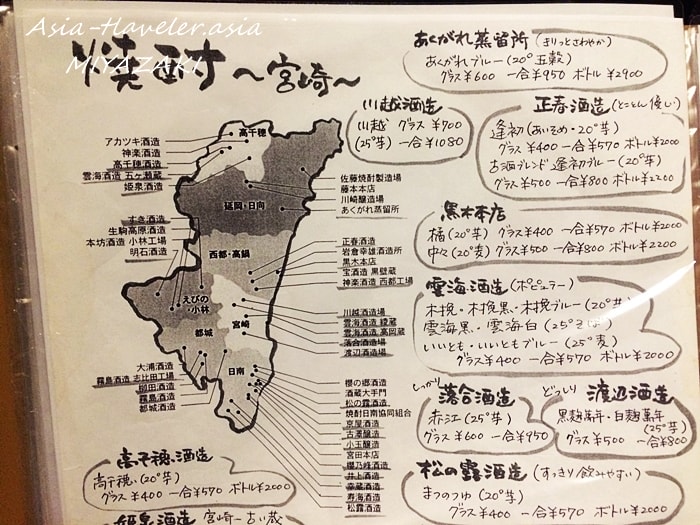 Asia-Traveler.asia
MIYAZAKI
焼酎
～宮崎～
あくがれ蒸留所 (きりっとさわやか)
あくがれブルー(20°五穀)
グラス¥600 一合¥950 ボトル¥2900
川越酒造
川越 グラス¥700
(25°芋) 一合¥1080
正春酒造(とことん優しい)
逢初(あいそめ・20°芋)
グラス¥400 一合¥570 ボトル¥2000
古酒ブレンド 逢初ブルー(20°芋)
グラス¥500 一合¥800 ボトル¥2200
黒木本店
橘(20°芋) グラス¥400 一合¥570 ボトル¥2000
中々(20°麦) グラス¥500 一合¥800 ボトル¥2200
雲海酒造(ポピュラー)
木挽・木挽黒・木挽ブルー(20°芋)
雲海黒・雲海白(25°そば)
いいとも・いいともブルー(25°麦)
グラス¥400 一合¥570 ボトル¥2000
しっかり
落合酒造
赤江(25°芋)
グラス¥600 一合¥950
どっしり
渡辺酒造
黒麹萬年・白麹萬年
(25°芋)
グラス¥500 一合¥800
松の露酒造(すっきり飲みやすい)
まつのつゆ(20°芋)
グラス¥400 一合¥570 ボトル¥2000
高千穂酒造
高千穂(20°芋)
グラス¥400 一合¥570 ボトル¥2000
姫泉酒造 宮崎一古い蔵
アカツキ酒造
神楽酒造
高千穂酒造
雲海酒造 五ヶ瀬蔵
姫泉酒造
すき酒造
生駒高原酒造
本坊酒造 小林工場
明石酒造
大浦酒造
霧島酒造 志比田工場
柳田酒造
霧島酒造
都城酒造
高千穂
延岡・日向
西都・高鍋
えびの・小林
宮崎
都城
日南
佐藤焼酎製造場
藤本本店
川崎醸造場
あくがれ蒸留所
正春酒造
岩倉幸雄酒造所
黒木本店
宝酒造 黒壁蔵
神楽酒造 西都工場
川越酒造場
雲海酒造 綾蔵
雲海酒造 高岡蔵
落合酒造場
渡辺酒造場
櫻の郷酒造
酒蔵大手門
松の露酒造
焼酎日南協同組合
京屋酒造
古澤醸造
小玉醸造
宮田本店
櫻乃峰酒造
井上酒造
幸蔵酒造
寿海酒造
松露酒造